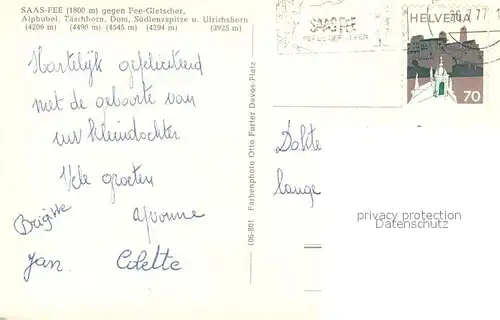 SAAS-FEE (1800 m) gegen Fee-Gletscher,
Alphubel, Täschhorn, Dom, Südlenzspitze u. Ulrichshorn
(4206 m) (4490 m) (4545 m) (4294 m) (3925 m)
Hartelijk gefeliciteerd
met de geboorte van
uw kleindochter
Vele groeten
Brigitte Yvonne
Jan. Colette
106-B01 Farbenphoto Otto Furter Davos-Platz
SAAS FEE
HELVETIA
70
lange
privacy protection
Datenschutz